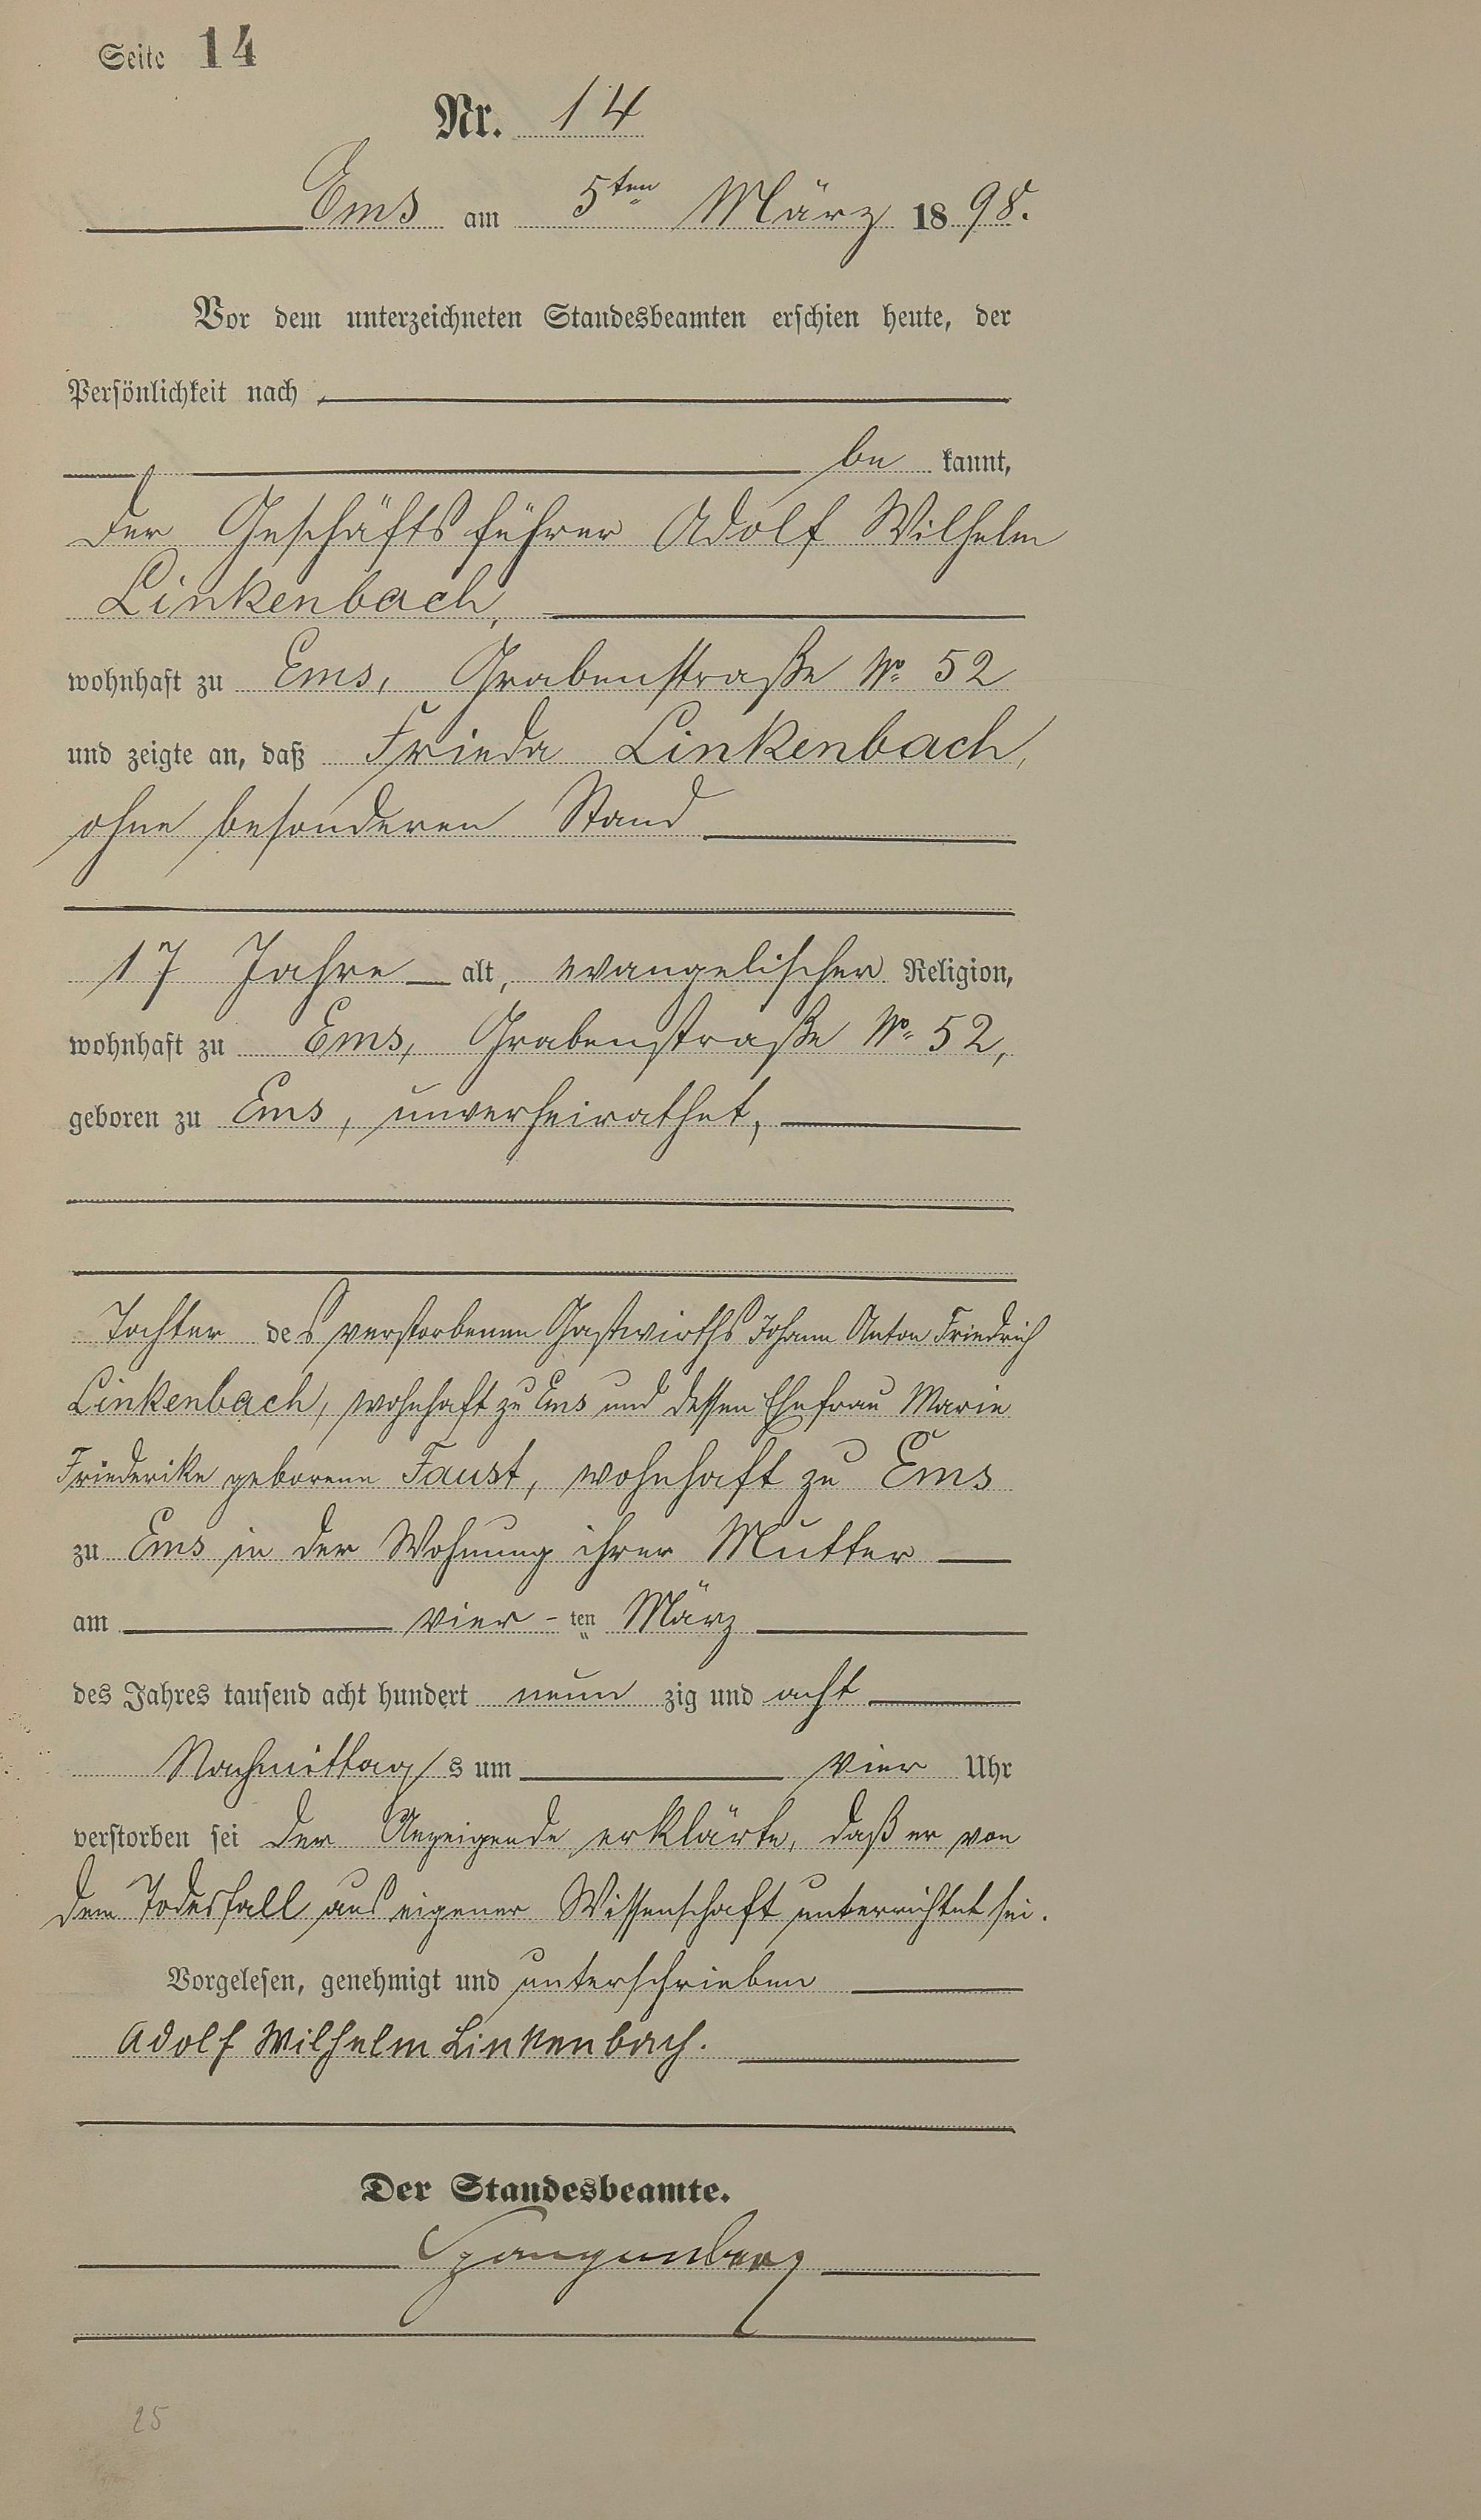 Seite 14
Nr. 14
Ems am 5ten März 1898.
Vor dem unterzeichneten Standesbeamten erschien heute, der
Persönlichkeit nach
be kannt,
der Geschäftsführer Adolf Wilhelm
Linkenbach,
wohnhaft zu Ems, Grabenstraße No 52
und zeigte an, daß Frieda Linkenbach,
ohne besonderen Stand
17 Jahre alt, evangelischer Religion,
wohnhaft zu Ems, Grabenstraße No 52,
geboren zu Ems, unverheirathet,
Tochter des verstorbenen Gastwirths Johann Anton Friedrich
Linkenbach, wohnhaft zu Ems und dessen Ehefrau Marie
Friederike geborene Faust, wohnhaft zu Ems
zu Ems in der Wohnung ihrer Mutter
am vier-ten März
des Jahres tausend acht hundert neun zig und acht
Nachmittags um vier Uhr
verstorben sei der Anzeigende erklärte, daß er von
dem Todesfall aus eigener Wissenschaft unterrichtet sei.
Vorgelesen, genehmigt und unterschrieben
Adolf Wilhelm Linkenbach.
Der Standesbeamte.
Spangenberg
25